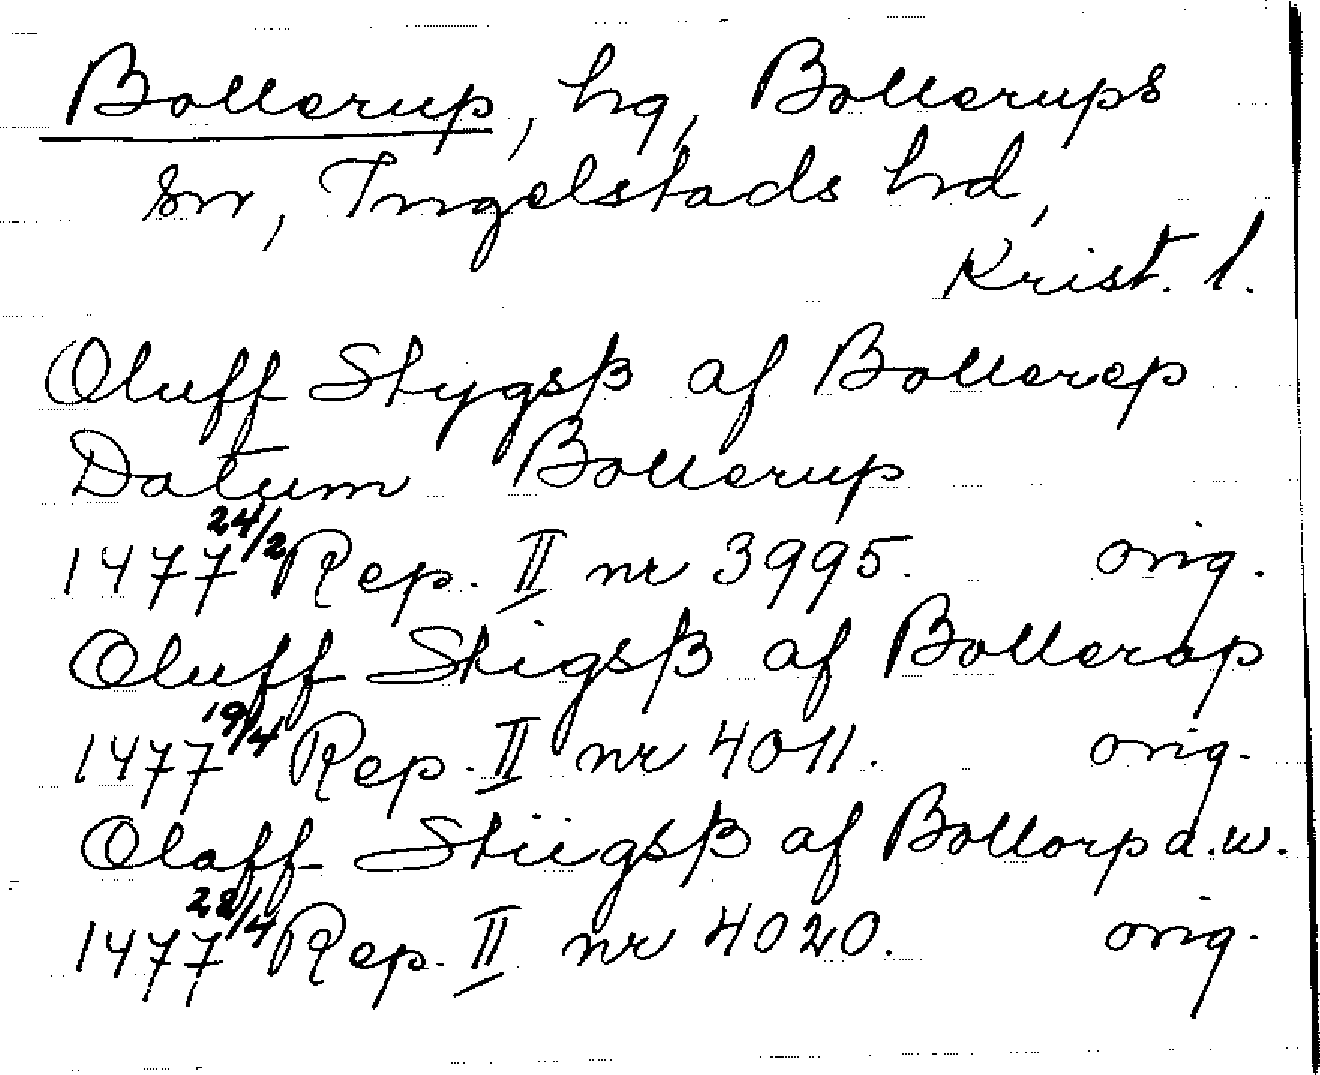 Bollerup, hg, Bollerups
sn, Ingelstads hd,
Krist. l.
Oluff Stygsß af Bollerep
Datum Bollerup
1477 24/2 Rep. II nr 3995. orig.
Oluff Stigsß af Bollerop
1477 19/4 Rep. II nr 4011. orig.
Olaff Stiigsß af Bollorp a.w.
1477 28/4 Rep. II nr 4020. orig.